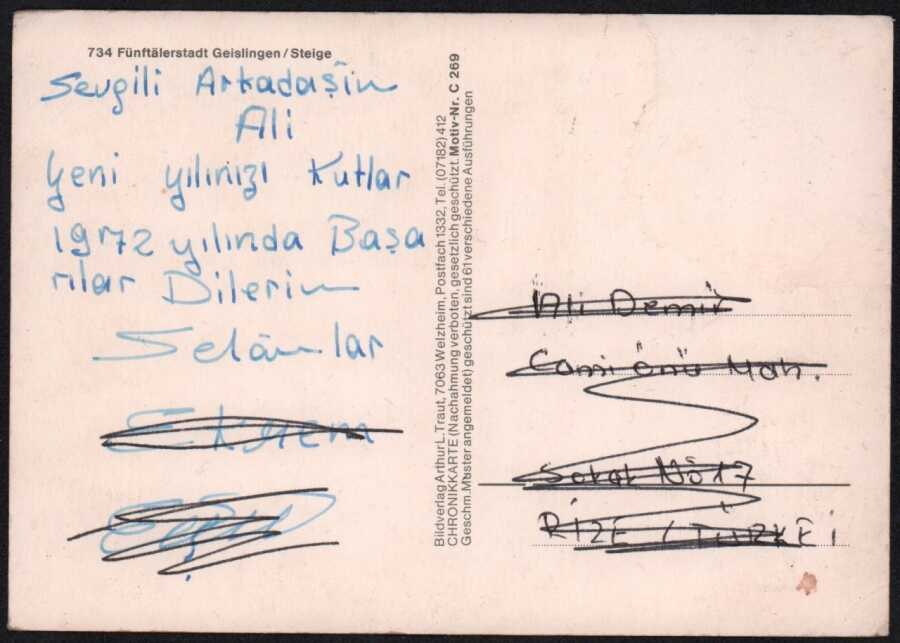 734 Fünftälerstadt Geislingen / Steige
Sevgili Arkadaşim
Ali
Yeni yılınızı Kutlar
1972 yılında Başa
rılar Dilerim
Selâmlar
Bildverlag Arthur L. Traut, 7063 Welzheim, Postfach 1332, Tel. (07182) 412
CHRONIKKARTE (Nachahmung verboten, gesetzlich geschützt. Motiv-Nr. C 269
Geschm. Muster angemeldet) geschützt sind 61 verschiedene Ausführungen
Ali Demir
Cami önü Mah.
Sokak No 17
RİZE / TÜRKEİ